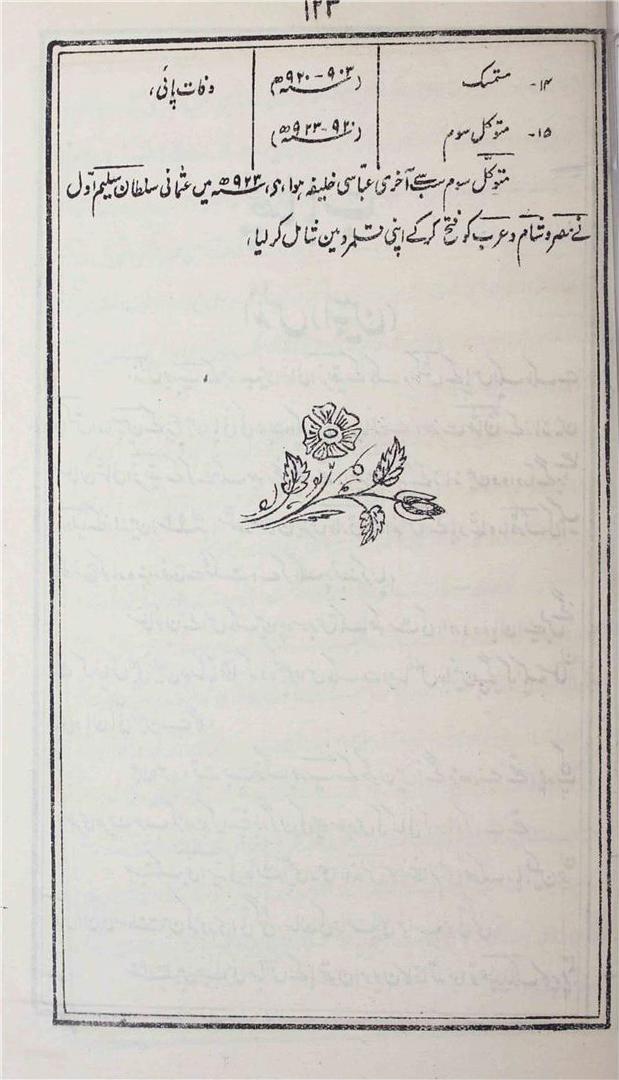 ۱۲۳
۱۴- متمسک (۹۰۳-۹۲۰ھ) وفات پائی،
۱۵- متوکل سوم (۹۲۰-۹۲۳ھ)
متوکل سوم سب سے آخری عباسی خلیفہ ہوا ہی، ۹۲۳ھ میں عثمانی سلطان سلیم اوّل
نے مصر و شام و عرب کو فتح کر کے اپنی قلمرو مین شامل کر لیا،